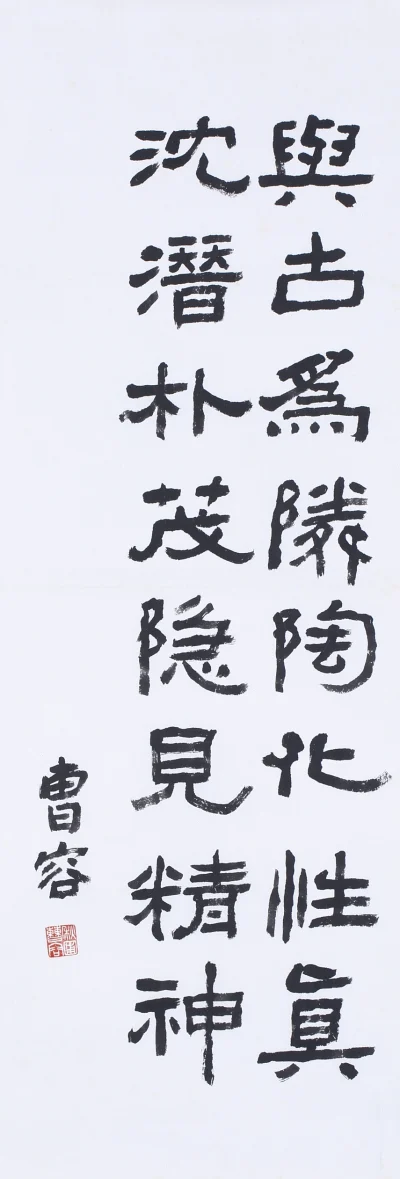 與古爲隣陶化性眞
沈潛朴茂隐見精神
曹容